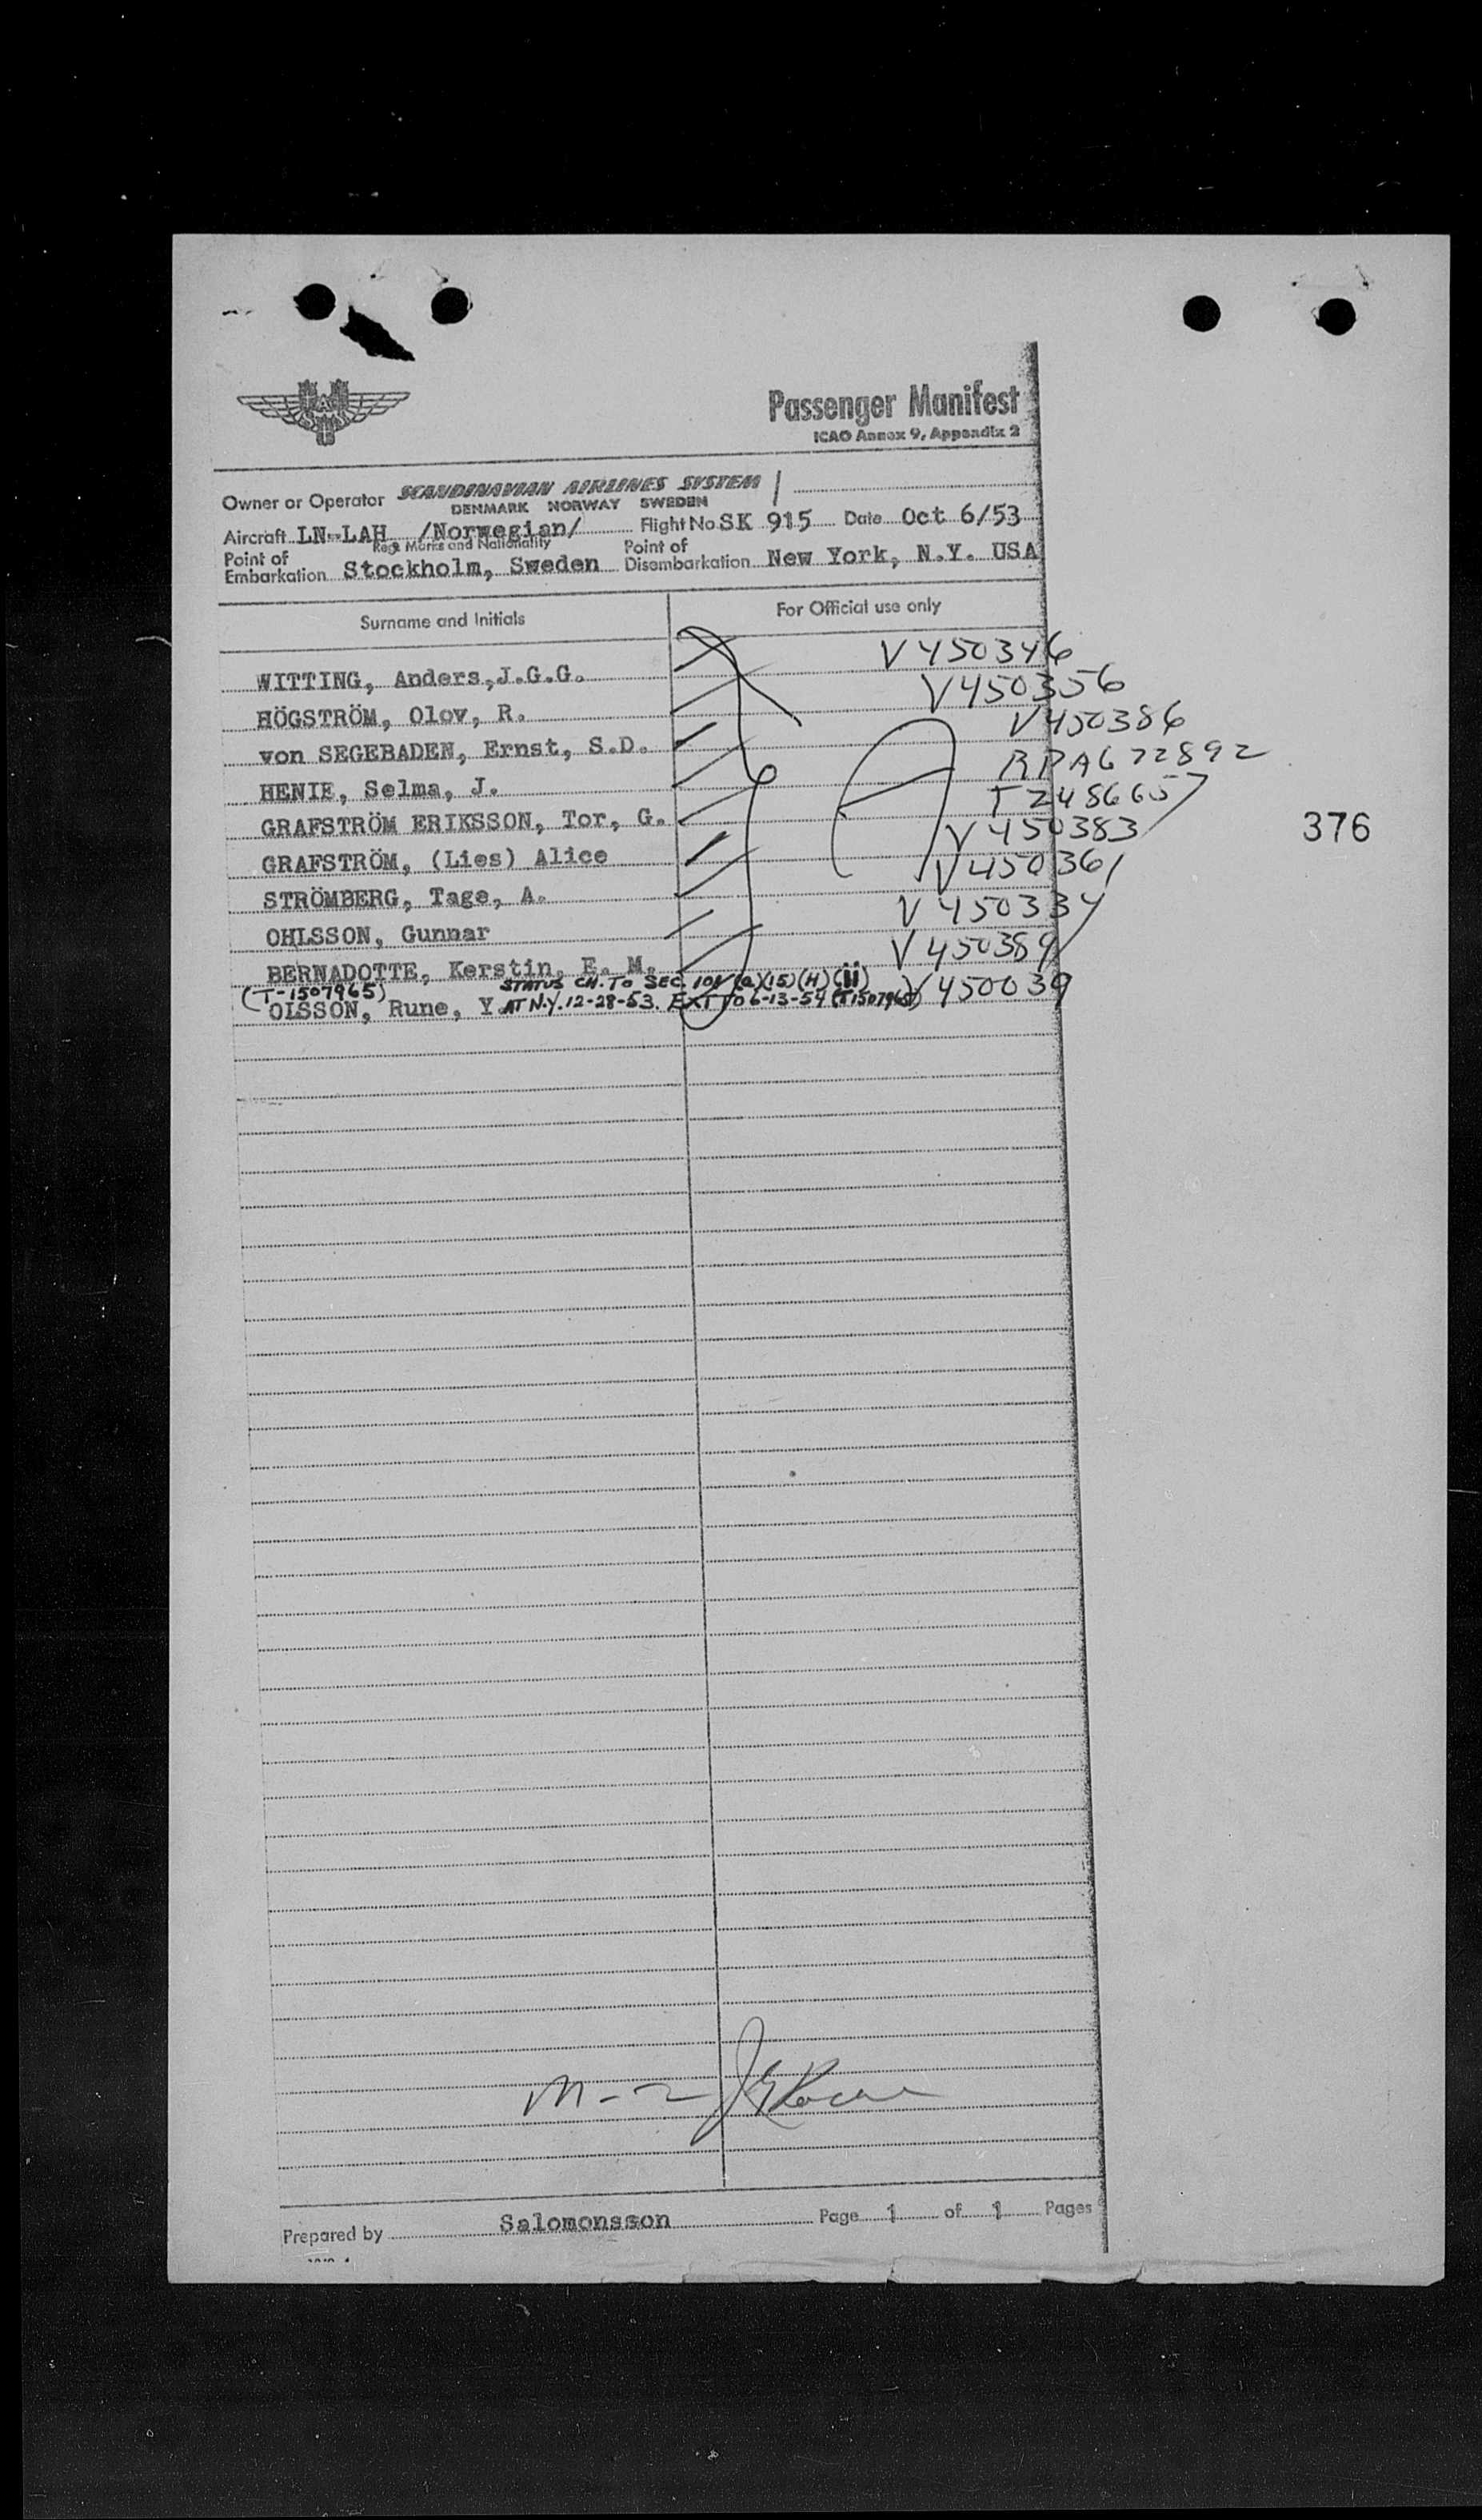 Passenger Manifest
ICAO Annex 9, Appendix 2
Owner or Operator SCANDINAVIAN AIRLINES SYSTEM
DENMARK NORWAY SWEDEN
Aircraft LN-LAH /Norwegian/ Flight No SK 915 Date Oct 6/53
Reg. Marks and Nationality
Point of Embarkation Stockholm, Sweden Point of Disembarkation New York, N.Y. USA
Surname and Initials For Official use only
WITTING, Anders,J.G.G. V450346
HÖGSTRÖM, Olov, R. V450356
von SEGEBADEN, Ernst, S.D. V450386
HENIE, Selma, J. RPA672892
GRAFSTRÖM ERIKSSON, Tor, G. T248665
GRAFSTRÖM, (Lies) Alice V450383
376
STRÖMBERG, Tage, A. V450361
OHLSSON, Gunnar V450334
BERNADOTTE, Kerstin, E. M. V450389
(T-1507965) STATUS CH. TO SEC. 101 (a)(15)(H)(ii)
OLSSON, Rune, Y. AT N.Y. 12-28-53. EXT TO 6-13-54 (T1507965) V450039
M-2
Prepared by Salomonsson Page 1 of 1 Pages